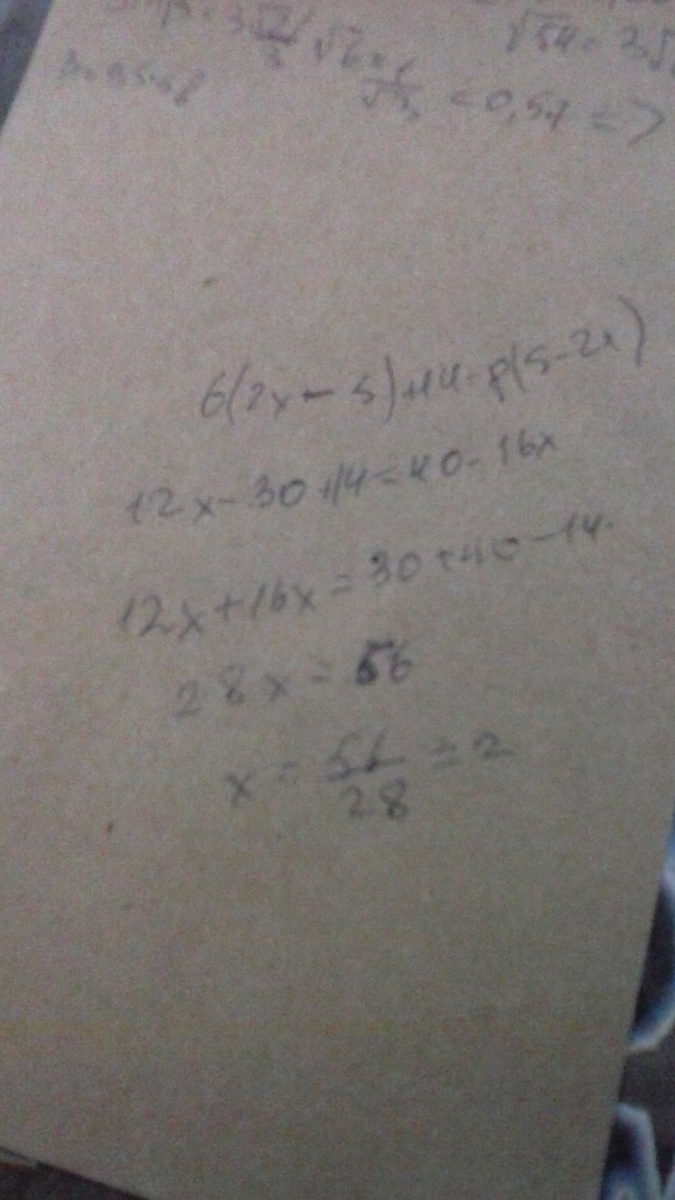 √54 = 3√
< 0,57 =>
6(2x - 5)+14=8(5-2x)
12x-30+14=40-16x
12x+16x=30+40-14.
28x=56
x = 56/28 = 2